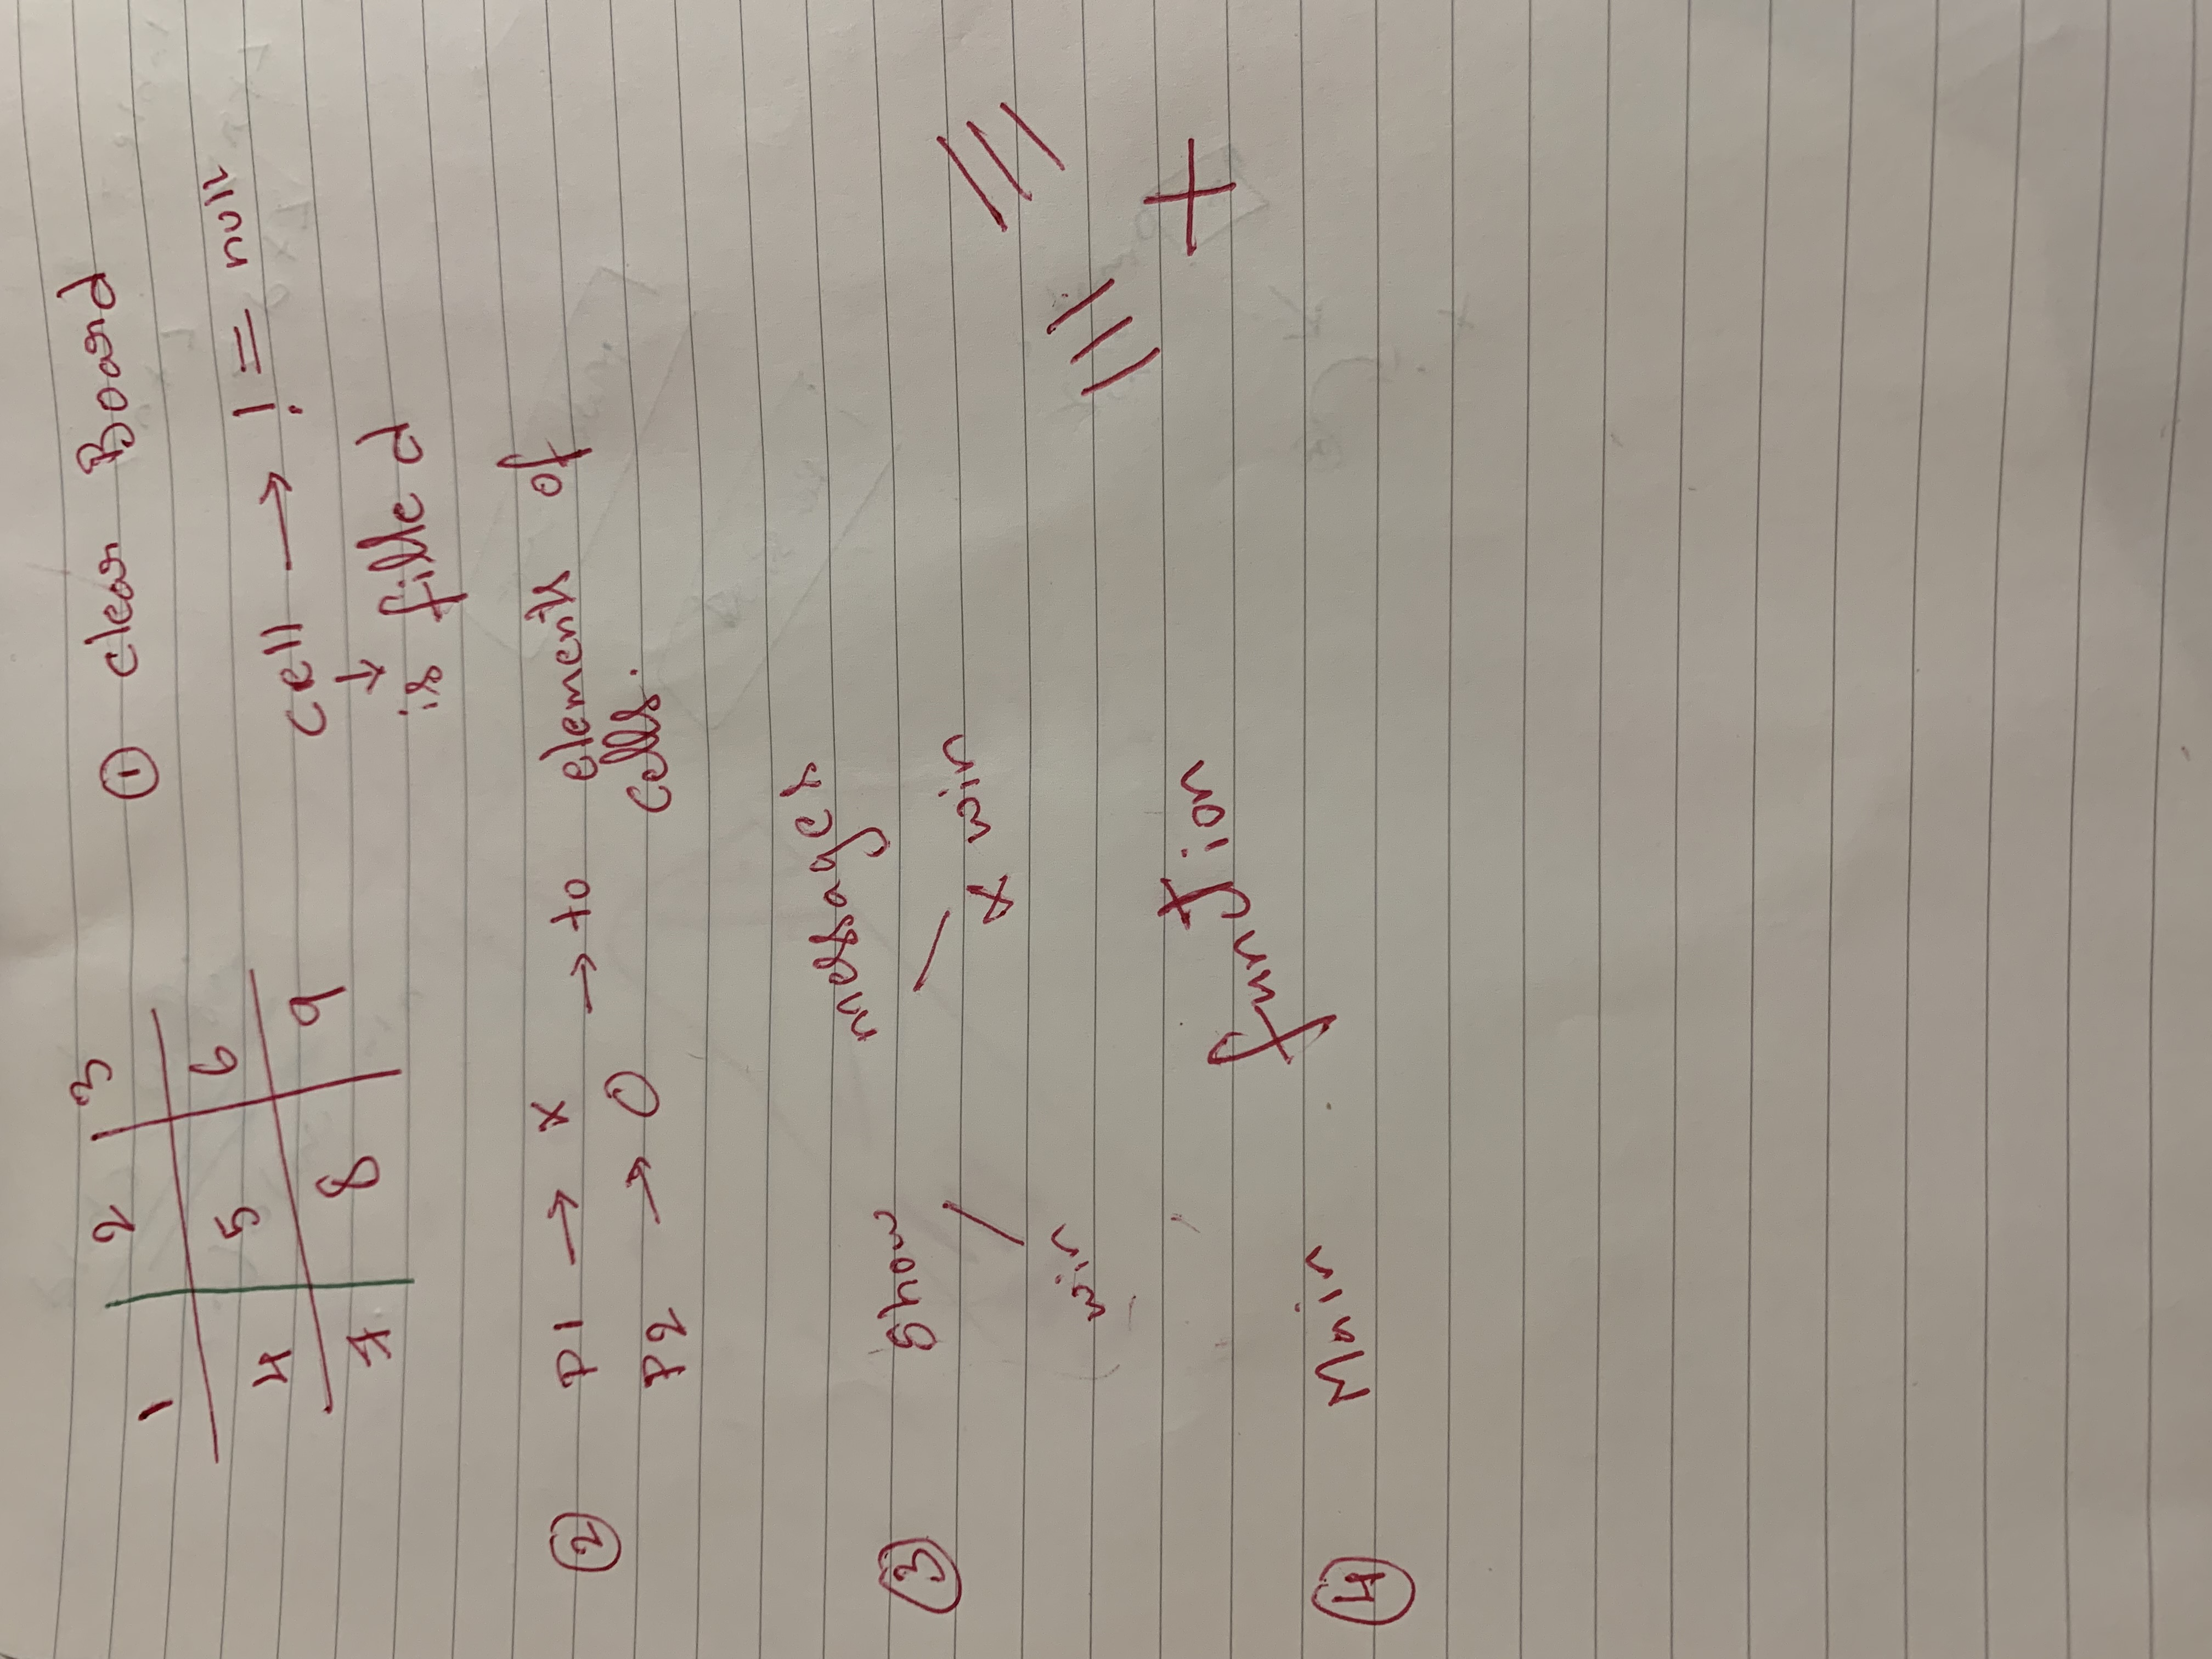 1 2 3
4 5 6
7 8 9
① clear Board
cell → != null
↓
is filled
② P1 → X → to elements of
P2 → O cells.
③ show messages
win X win
④ Main function